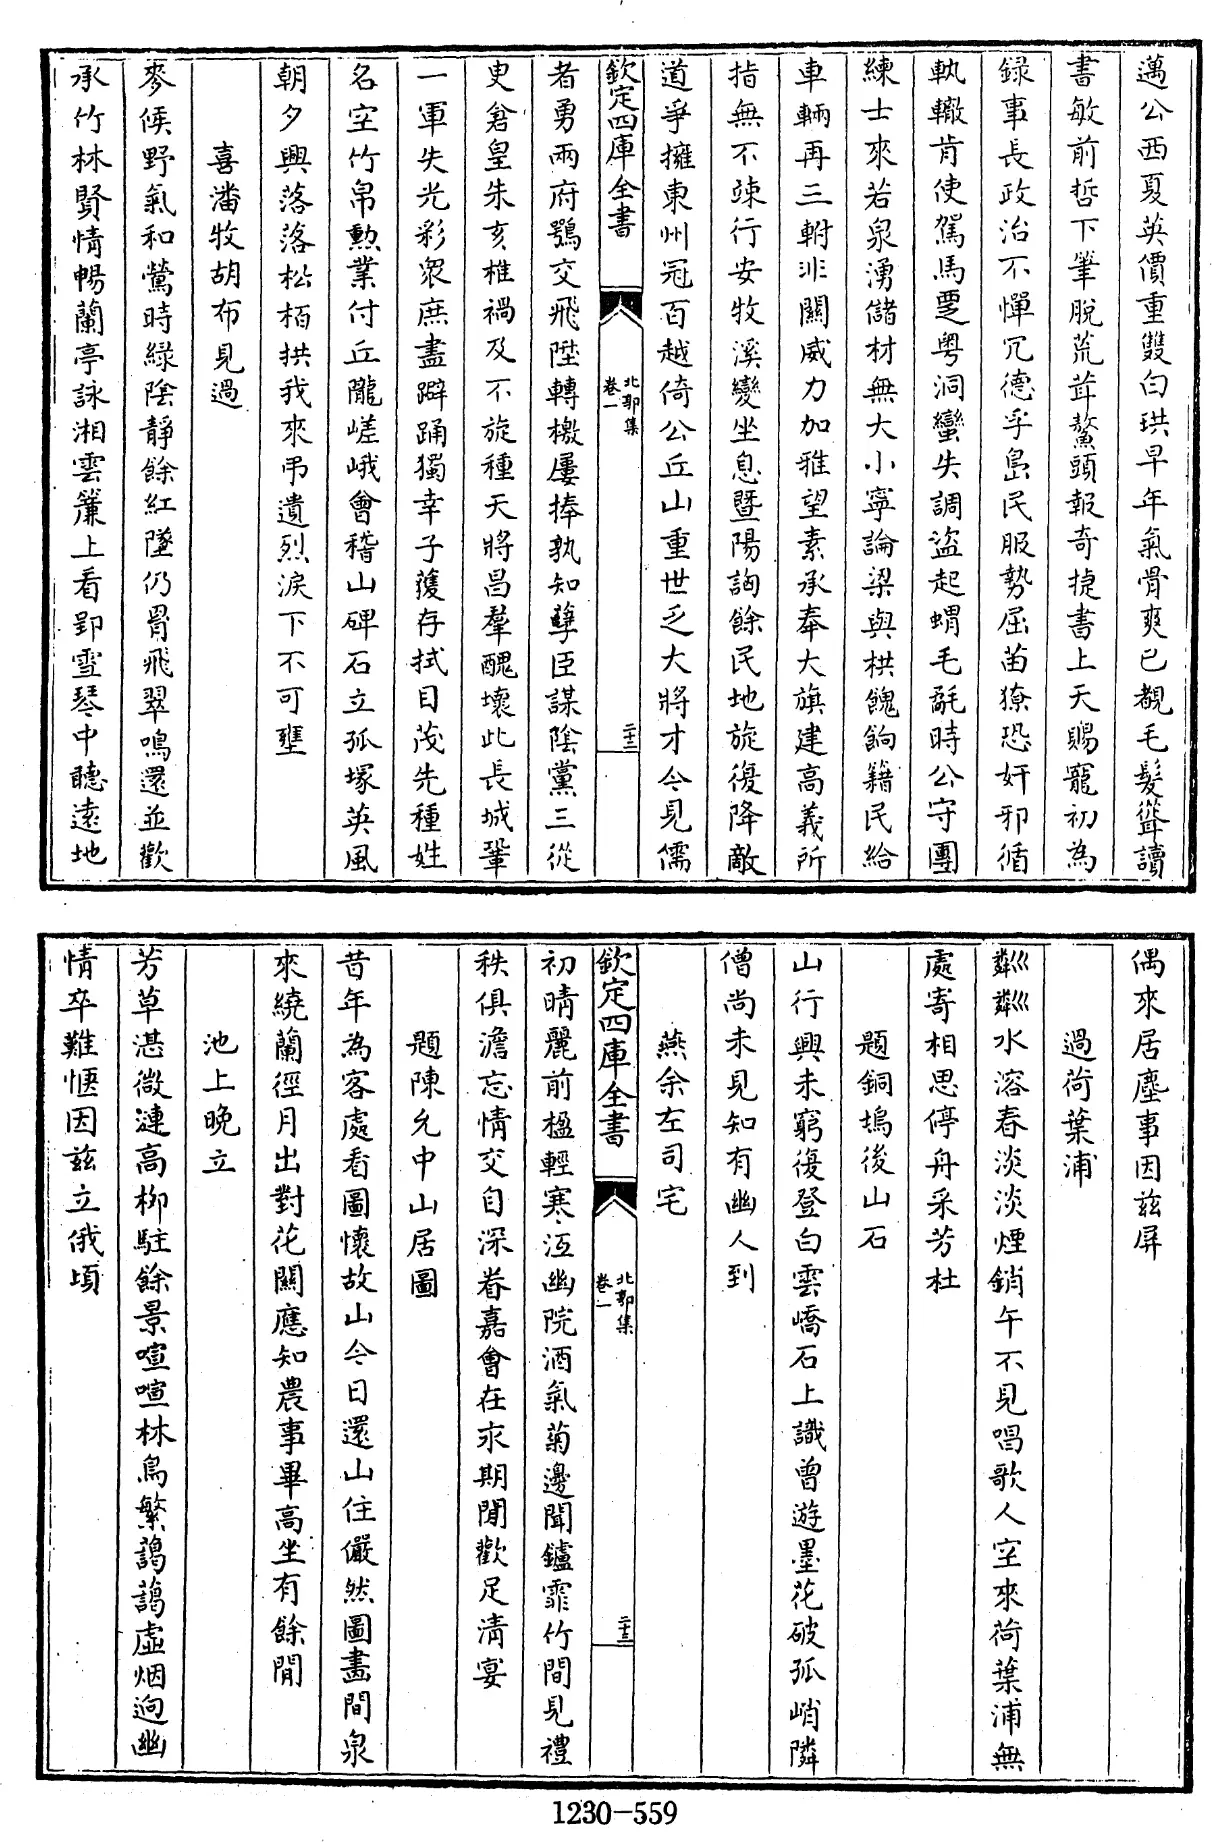 邁公西夏英價重雙白珙早年氣骨爽已覩毛髮聳讀
書敏前哲下筆脫荒茸鰲頭報奇捷書上天賜寵初為
録事長政治不憚冗德孚島民服勢屈苗獠恐奸邪循
軌轍肯使駕馬覂粤洞蠻失調盜起蝟毛氄時公守團
練士來若泉湧儲材無大小寧論梁與栱餽餉籍民給
車輛再三軵非關威力加雅望素承奉大旗建高義所
指無不竦行安牧溪變坐息暨陽詾餘民地旋復降敵
道爭擁東州冠百越倚公丘山重世乏大將才今見儒
欽定四庫全書
北郭集
卷一
二十三
者勇兩府鶚交飛陞轉檄屢捧孰知孽臣謀陰黨三從
吏倉皇朱亥椎禍及不旋種天將昌羣醜壞此長城鞏
一軍失光彩衆庶盡躃踊獨幸子蕿存拭目茂先種姓
名空竹帛勲業付丘隴嵯峨會稽山碑石立孤塚英風
朝夕興落落松栢拱我來弔遺烈淚下不可壅
喜潘牧胡布見過
麥候野氣和鶯時緑陰靜餘紅墜仍罥飛翠鳴還並歡
承竹林賢情暢蘭亭詠湘雲簾上看郢雪琴中聽遠地
偶來居塵事因兹屏
過荷葉浦
粼粼水溶春淡淡煙銷午不見唱歌人空來荷葉浦無
處寄相思停舟采芳杜
題銅塢後山石
山行興未窮復登白雲嶠石上識曾遊墨花破孤峭隣
僧尚未見知有幽人到
燕余左司宅
欽定四庫全書
北郭集
卷一
二十三
初晴麗前楹輕寒沍幽院酒氣菊邊聞鑪霏竹間見禮
秩俱澹忘情交自深眷嘉會在永期閒歡足清宴
題陳允中山居圖
昔年為客處看圖懷故山今日還山住儼然圖畫間泉
來繞蘭徑月出對花關應知農事畢高坐有餘閒
池上晚立
芳草湛微漣高栁駐餘景喧喧林鳥繁藹藹虛烟逈幽
情卒難愜因兹立俄頃
1230－559